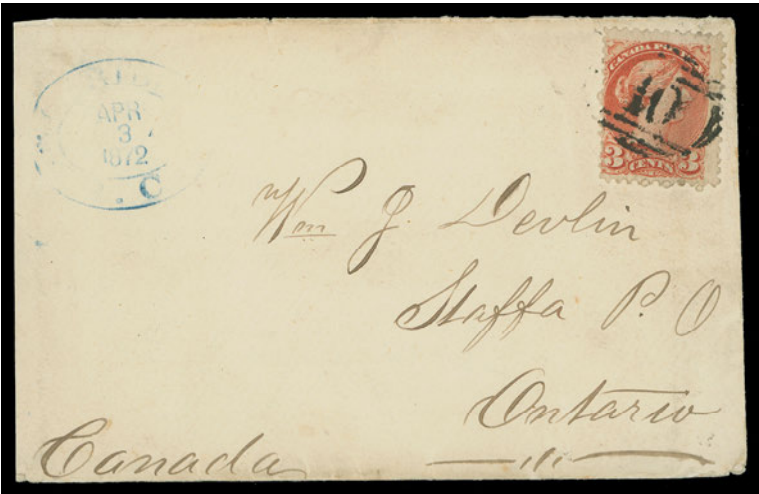 APR
3
1872
. C
CANADA POSTAGE
10
3 CENTS 3
Wm J. Devlin
Staffa P. O
Ontario
Canada